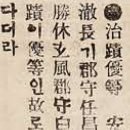 ◎治蹟優等 安
澈長기郡守任昌
勝休玄風郡守白
蹟이優等인故로
다더라